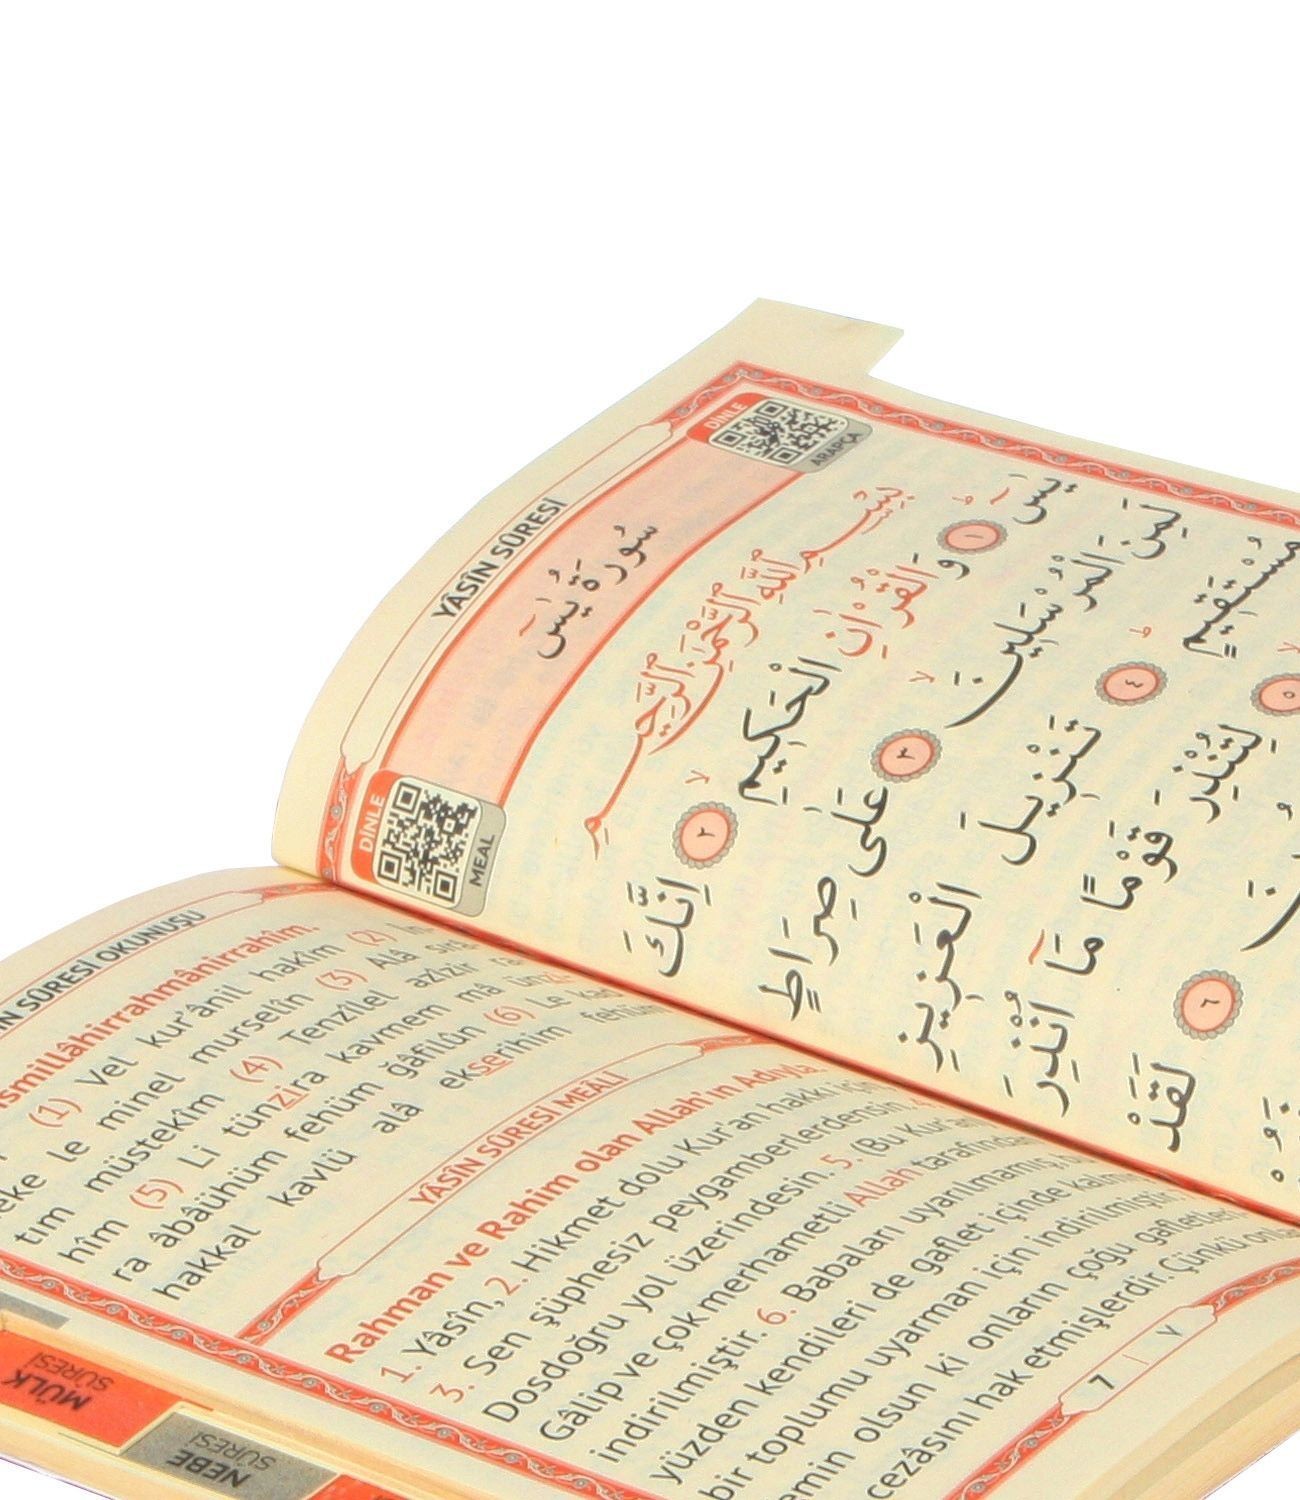 YÂSÎN SÛRESİ
DİNLE
ARAPÇA
DİNLE
MEAL
سُورَةُ يٰسٓ
بِسْمِ اللّٰهِ الرَّحْمٰنِ الرَّحِيمِ
يٰسٓ ۚ ﴿١﴾ وَالْقُرْاٰنِ الْحَكِيمِ ۙ ﴿٢﴾ اِنَّكَ
لَمِنَ الْمُرْسَلِينَ ۙ ﴿٣﴾ عَلٰى صِرَاطٍ
مُسْتَقِيمٍ ۜ ﴿٤﴾ تَنْزِيلَ الْعَزِيزِ
﴿٥﴾ لِتُنْذِرَ قَوْمًا مَٓا اُنْذِرَ
﴿٦﴾ لَقَدْ
SÛRESİ OKUNUŞU
(1) Vel kur'ânil hakîm (2)
le minel murselîn (3) Alâ
müstekîm (4) Tenzîlel azîzir
hîm (5) Li tünzira kavmem mâ
ra âbâühüm fehüm ğâfilûn (6) Le
hakkal kavlü alâ ekserihim fehüm
YÂSÎN SÛRESİ MEÂLİ
Rahman ve Rahim olan Allah'ın Adıyla.
1. Yâsîn, 2. Hikmet dolu Kur'an hakkı için
3. Sen şüphesiz peygamberlerdensin.
Dosdoğru yol üzerindesin. 5. (Bu Kur'an
Gâlip ve çok merhametli Allah tarafından
indirilmiştir. 6. Babaları uyarılmamış,
yüzden kendileri de gaflet içinde
bir toplumu uyarman için indirilmiştir.
olsun ki onların çoğu gafletleri
cezâsını hak etmişlerdir. Çünkü
7 | ٧
MÜLK
SÛRESİ
NEBE
SÛRESİ